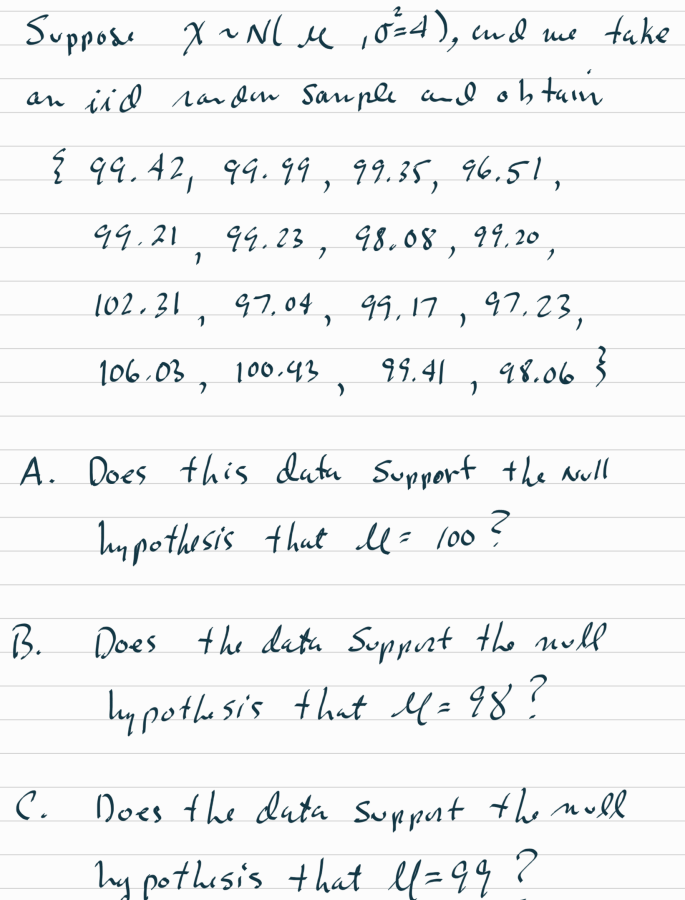 Suppose X ~ N( μ , σ²=4), and we take
an iid random sample and obtain
{ 99.42, 99.99, 99.35, 96.51,
99.21, 99.23, 98.08, 99.20,
102.31, 97.04, 99.17, 97.23,
106.03, 100.93, 99.41, 98.06 }
A. Does this data support the null
hypothesis that μ = 100?
B. Does the data support the null
hypothesis that μ = 98?
C. Does the data support the null
hypothesis that μ = 99?